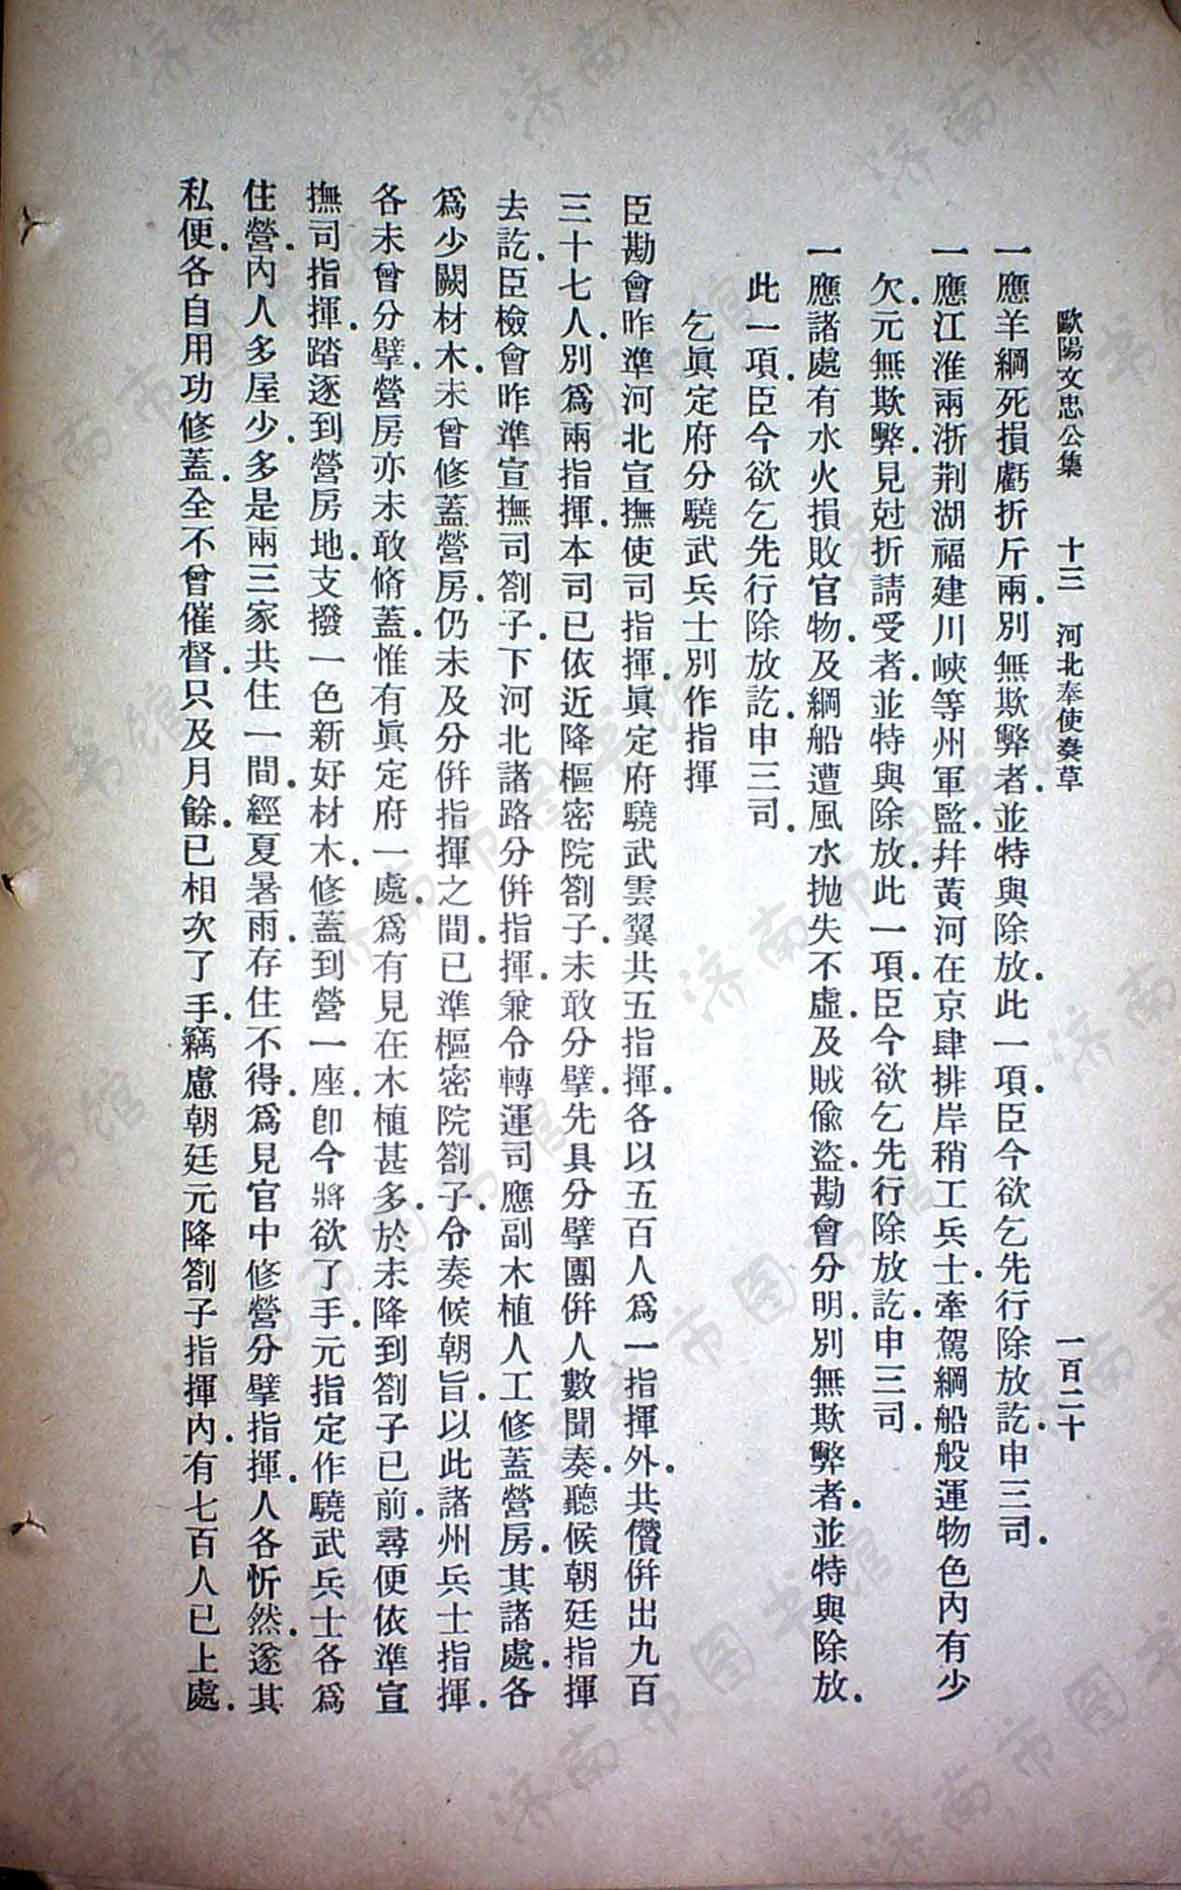 歐陽文忠公集　十三　河北奉使奏草　一百二十
一應羊綱死損虧折斤兩．別無欺弊者．並特與除放．此一項．臣今欲乞先行除放訖．申三司．
一應江淮兩浙荆湖福建川峽等州軍監．幷黃河在京肆排岸稍工兵士．牽駕綱船般運物色內有少
欠．元無欺弊．見尅折請受者．並特與除放．此一項．臣今欲乞先行除放訖．申三司．
一應諸處有水火損敗官物．及綱船遭風水抛失不虛．及賊偸盜．勘會分明．別無欺弊者．並特與除放．
此一項．臣今欲乞先行除放訖．申三司．
乞眞定府分驍武兵士別作指揮
臣勘會昨準河北宣撫使司指揮．眞定府驍武雲翼共五指揮．各以五百人爲一指揮外．共儹併出九百
三十七人．別爲兩指揮．本司已依近降樞密院劄子．未敢分擘．先具分擘團併人數聞奏．聽候朝廷指揮
去訖．臣檢會昨準宣撫司劄子．下河北諸路分併指揮．兼令轉運司應副木植人工修蓋營房．其諸處．各
爲少闕材木．未曾修蓋營房．仍未及分併指揮之間．已準樞密院劄子．令奏候朝旨．以此諸州兵士指揮．
各未曾分擘．營房亦未敢脩蓋．惟有眞定府一處．爲有見在木植甚多．於未降到劄子已前．尋便依準宣
撫司指揮．踏逐到營房地．支撥一色新好材木．修蓋到營一座．卽今將欲了手．元指定作驍武兵士各爲
住營．內人多屋少．多是兩三家共住一間．經夏暑雨．存住不得．爲見官中修營分擘指揮．人各忻然．遂其
私便．各自用功修蓋．全不曾催督．只及月餘．已相次了手．竊慮朝廷元降劄子指揮內．有七百人已上處．